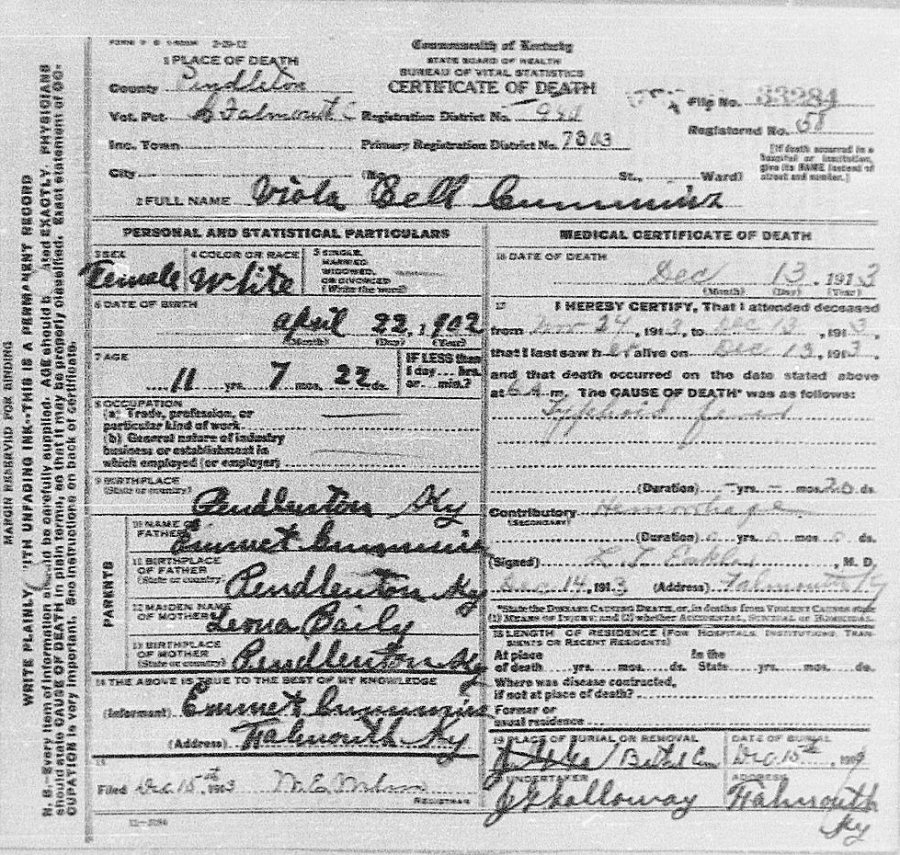 2-29-12
Commonwealth of Kentucky
STATE BOARD OF HEALTH
BUREAU OF VITAL STATISTICS
CERTIFICATE OF DEATH
1 PLACE OF DEATH
County Pendleton
Vot. Pct. S Falmouth Registration District No.
Inc. Town Primary Registration District No. 7303
City (No. St., Ward)
File No. 33284
Registered No. 58
[If death occurred in a hospital or institution, give its NAME instead of street and number.]
2 FULL NAME Viola Bell Cummins
PERSONAL AND STATISTICAL PARTICULARS
3 SEX Female
4 COLOR OR RACE White
5 SINGLE, MARRIED, WIDOWED, OR DIVORCED (Write the word)
6 DATE OF BIRTH
April 22, 1902
(Month) (Day) (Year)
7 AGE
11 yrs. 7 mos. 22 ds.
IF LESS than 1 day... hrs. or... min.?
8 OCCUPATION
(a) Trade, profession, or particular kind of work
(b) General nature of industry
business or establishment in
which employed (or employer)
9 BIRTHPLACE
(State or country)
Pendlenton Ky
PARENTS
10 NAME OF FATHER Emmet Cummins
11 BIRTHPLACE OF FATHER (State or country) Pendlenton Ky
12 MAIDEN NAME OF MOTHER Leona Baily
13 BIRTHPLACE OF MOTHER (State or country) Pendlenton Ky
14 THE ABOVE IS TRUE TO THE BEST OF MY KNOWLEDGE
(Informant) Emmet Cummins
(Address) Falmouth Ky
15
Filed Dec. 15th, 1913
REGISTRAR
11-3184
MEDICAL CERTIFICATE OF DEATH
16 DATE OF DEATH
Dec 13, 1913
(Month) (Day) (Year)
17 I HEREBY CERTIFY, That I attended deceased
from Nov 24, 1913, to Dec 13, 1913,
that I last saw her alive on Dec 13, 1913,
and that death occurred on the date stated above
at 6 A m. The CAUSE OF DEATH* was as follows:
Typhoid fever
(Duration) – yrs. – mos. 20 ds.
Contributory Hemorrhage
(SECONDARY)
(Duration) 0 yrs. 0 mos. 0 ds.
(Signed) M. D.
Dec 14, 1913 (Address) Falmouth Ky
*State the DISEASE CAUSING DEATH, or, in deaths from VIOLENT CAUSES state
(1) MEANS OF INJURY; and (2) whether ACCIDENTAL, SUICIDAL or HOMICIDAL.
18 LENGTH OF RESIDENCE (FOR HOSPITALS, INSTITUTIONS, TRANSIENTS OR RECENT RESIDENTS)
At place of death yrs. mos. ds. In the State yrs. mos. ds.
Where was disease contracted,
if not at place of death?
Former or
usual residence
19 PLACE OF BURIAL OR REMOVAL
DATE OF BURIAL
Dec. 15th, 191
UNDERTAKER
J J Galloway
ADDRESS
Falmouth
Ky
MARGIN RESERVED FOR BINDING
WRITE PLAINLY WITH UNFADING INK---THIS IS A PERMANENT RECORD
N. B.—Every item of information should be carefully supplied. AGE should be stated EXACTLY. PHYSICIANS
should state CAUSE OF DEATH in plain terms, so that it may be properly classified. Exact statement of OC-
CUPATION is very important. See instructions on back of certificate.